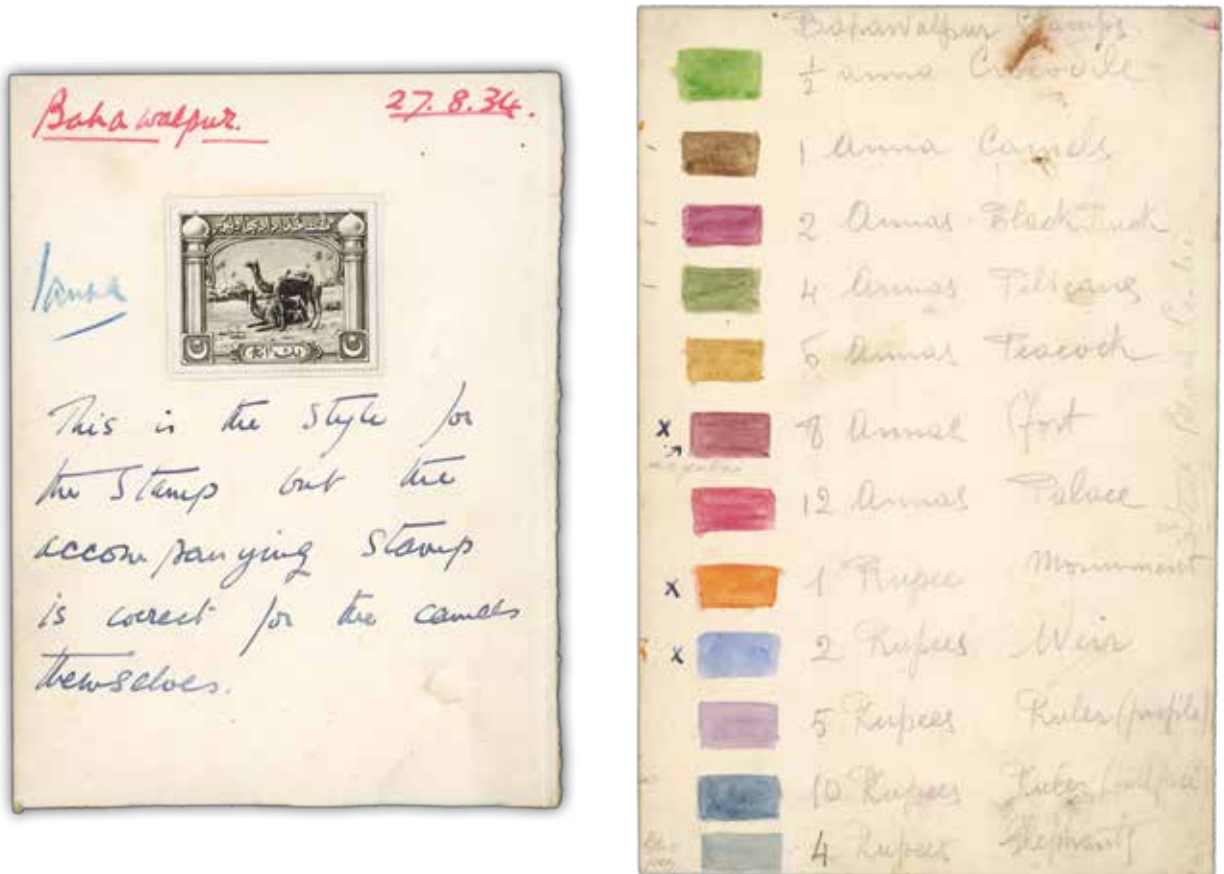 Bahawalpur. 27.8.34.
1 anna
This is the style for
the Stamp but the
accompanying Stamp
is correct for the camels
themselves.
Bahawalpur Stamps.
½ anna Crocodile
1 anna Camels
2 Annas Black buck
4 Annas Pelicans
6 Annas Peacock
x 8 Annas Fort
12 Annas Palace
x 1 Rupee Monument
x 2 Rupees Weir
5 Rupees Ruler (profile)
10 Rupees Ruler (full face)
4 Rupees Elephants